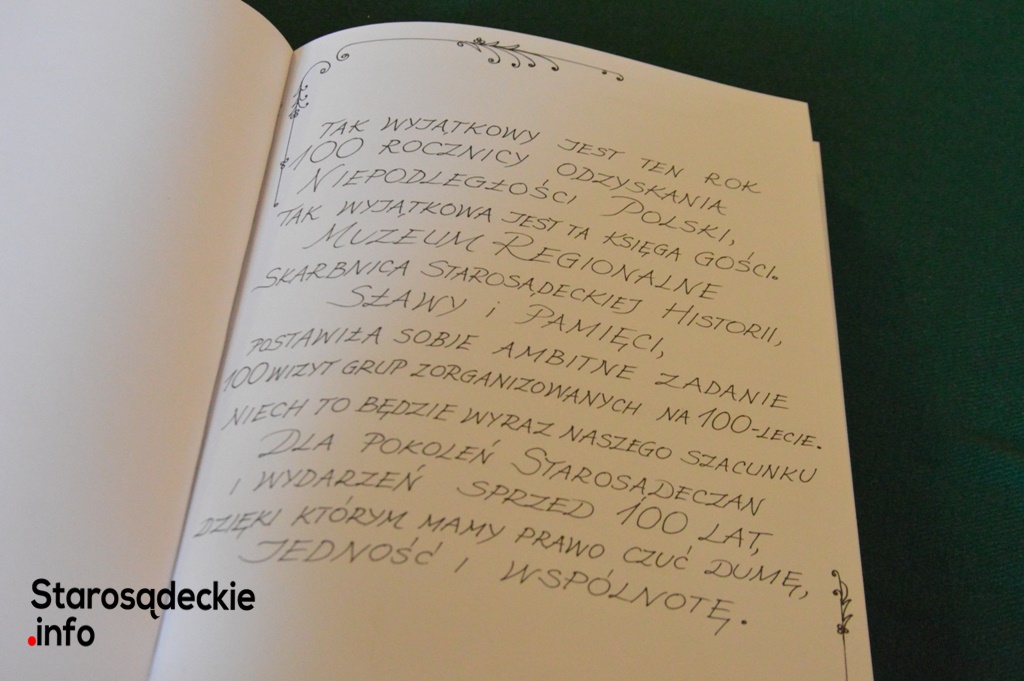 TAK WYJĄTKOWY JEST TEN ROK
100 ROCZNICY ODZYSKANIA
NIEPODLEGŁOŚCI POLSKI,
TAK WYJĄTKOWA JEST TA KSIĘGA GOŚCI.
MUZEUM REGIONALNE
SKARBNICA STAROSĄDECKIEJ HISTORII,
SŁAWY i PAMIĘCI,
POSTAWIŁA SOBIE AMBITNE ZADANIE
100 WIZYT GRUP ZORGANIZOWANYCH NA 100-LECIE.
NIECH TO BĘDZIE WYRAZ NASZEGO SZACUNKU
DLA POKOLEŃ STAROSĄDECZAN
I WYDARZEŃ SPRZED 100 LAT,
DZIĘKI KTÓRYM MAMY PRAWO CZUĆ DUMĘ,
JEDNOŚĆ I WSPÓLNOTĘ.
Starosądeckie
.info